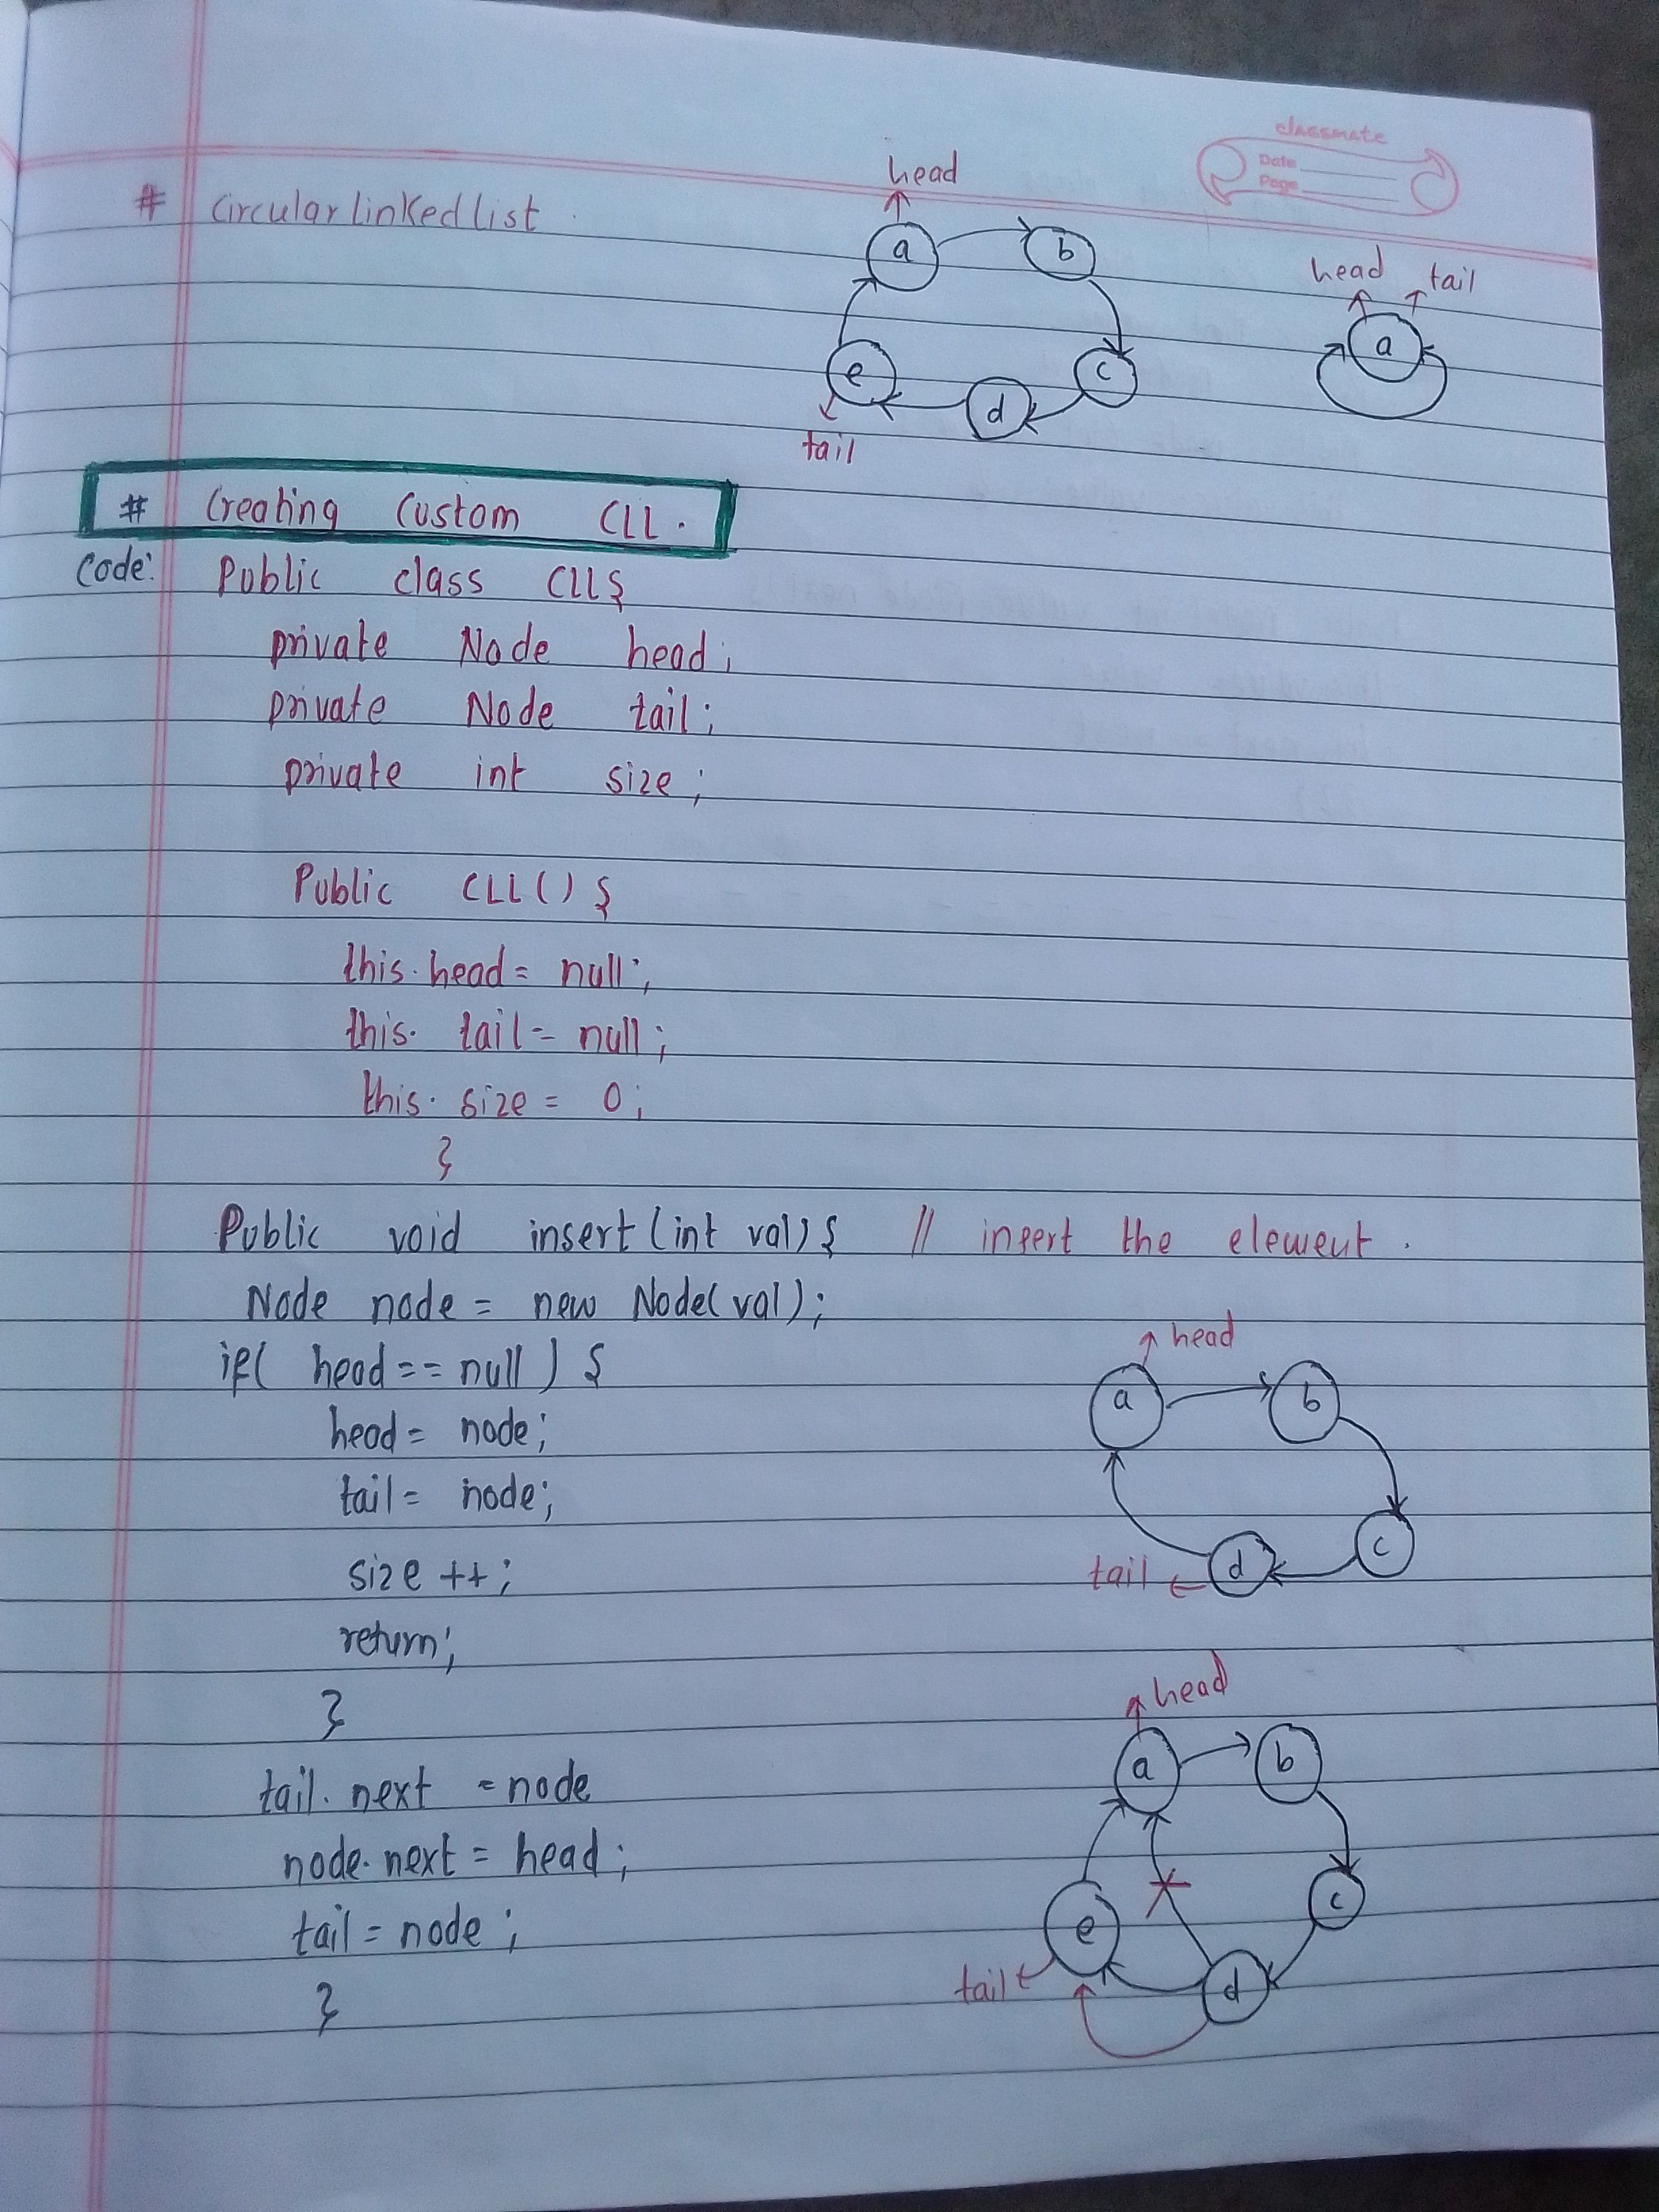 classmate
Date
Page
# Circular linked list.
head
a b
head tail
a
e c
d
tail
# Creating Custom CLL.
Code: Public class CLL{
private Node head;
private Node tail;
private int size;
Public CLL() {
this.head = null;
this. tail = null;
this. size = 0;
}
Public void insert (int val) { // insert the element.
Node node = new Node(val);
if( head == null ) {
head
a b
head = node;
tail = node;
c
size ++;
tail d
return;
}
head
a b
tail. next = node
node. next = head;
c
tail = node;
e
tail d
}